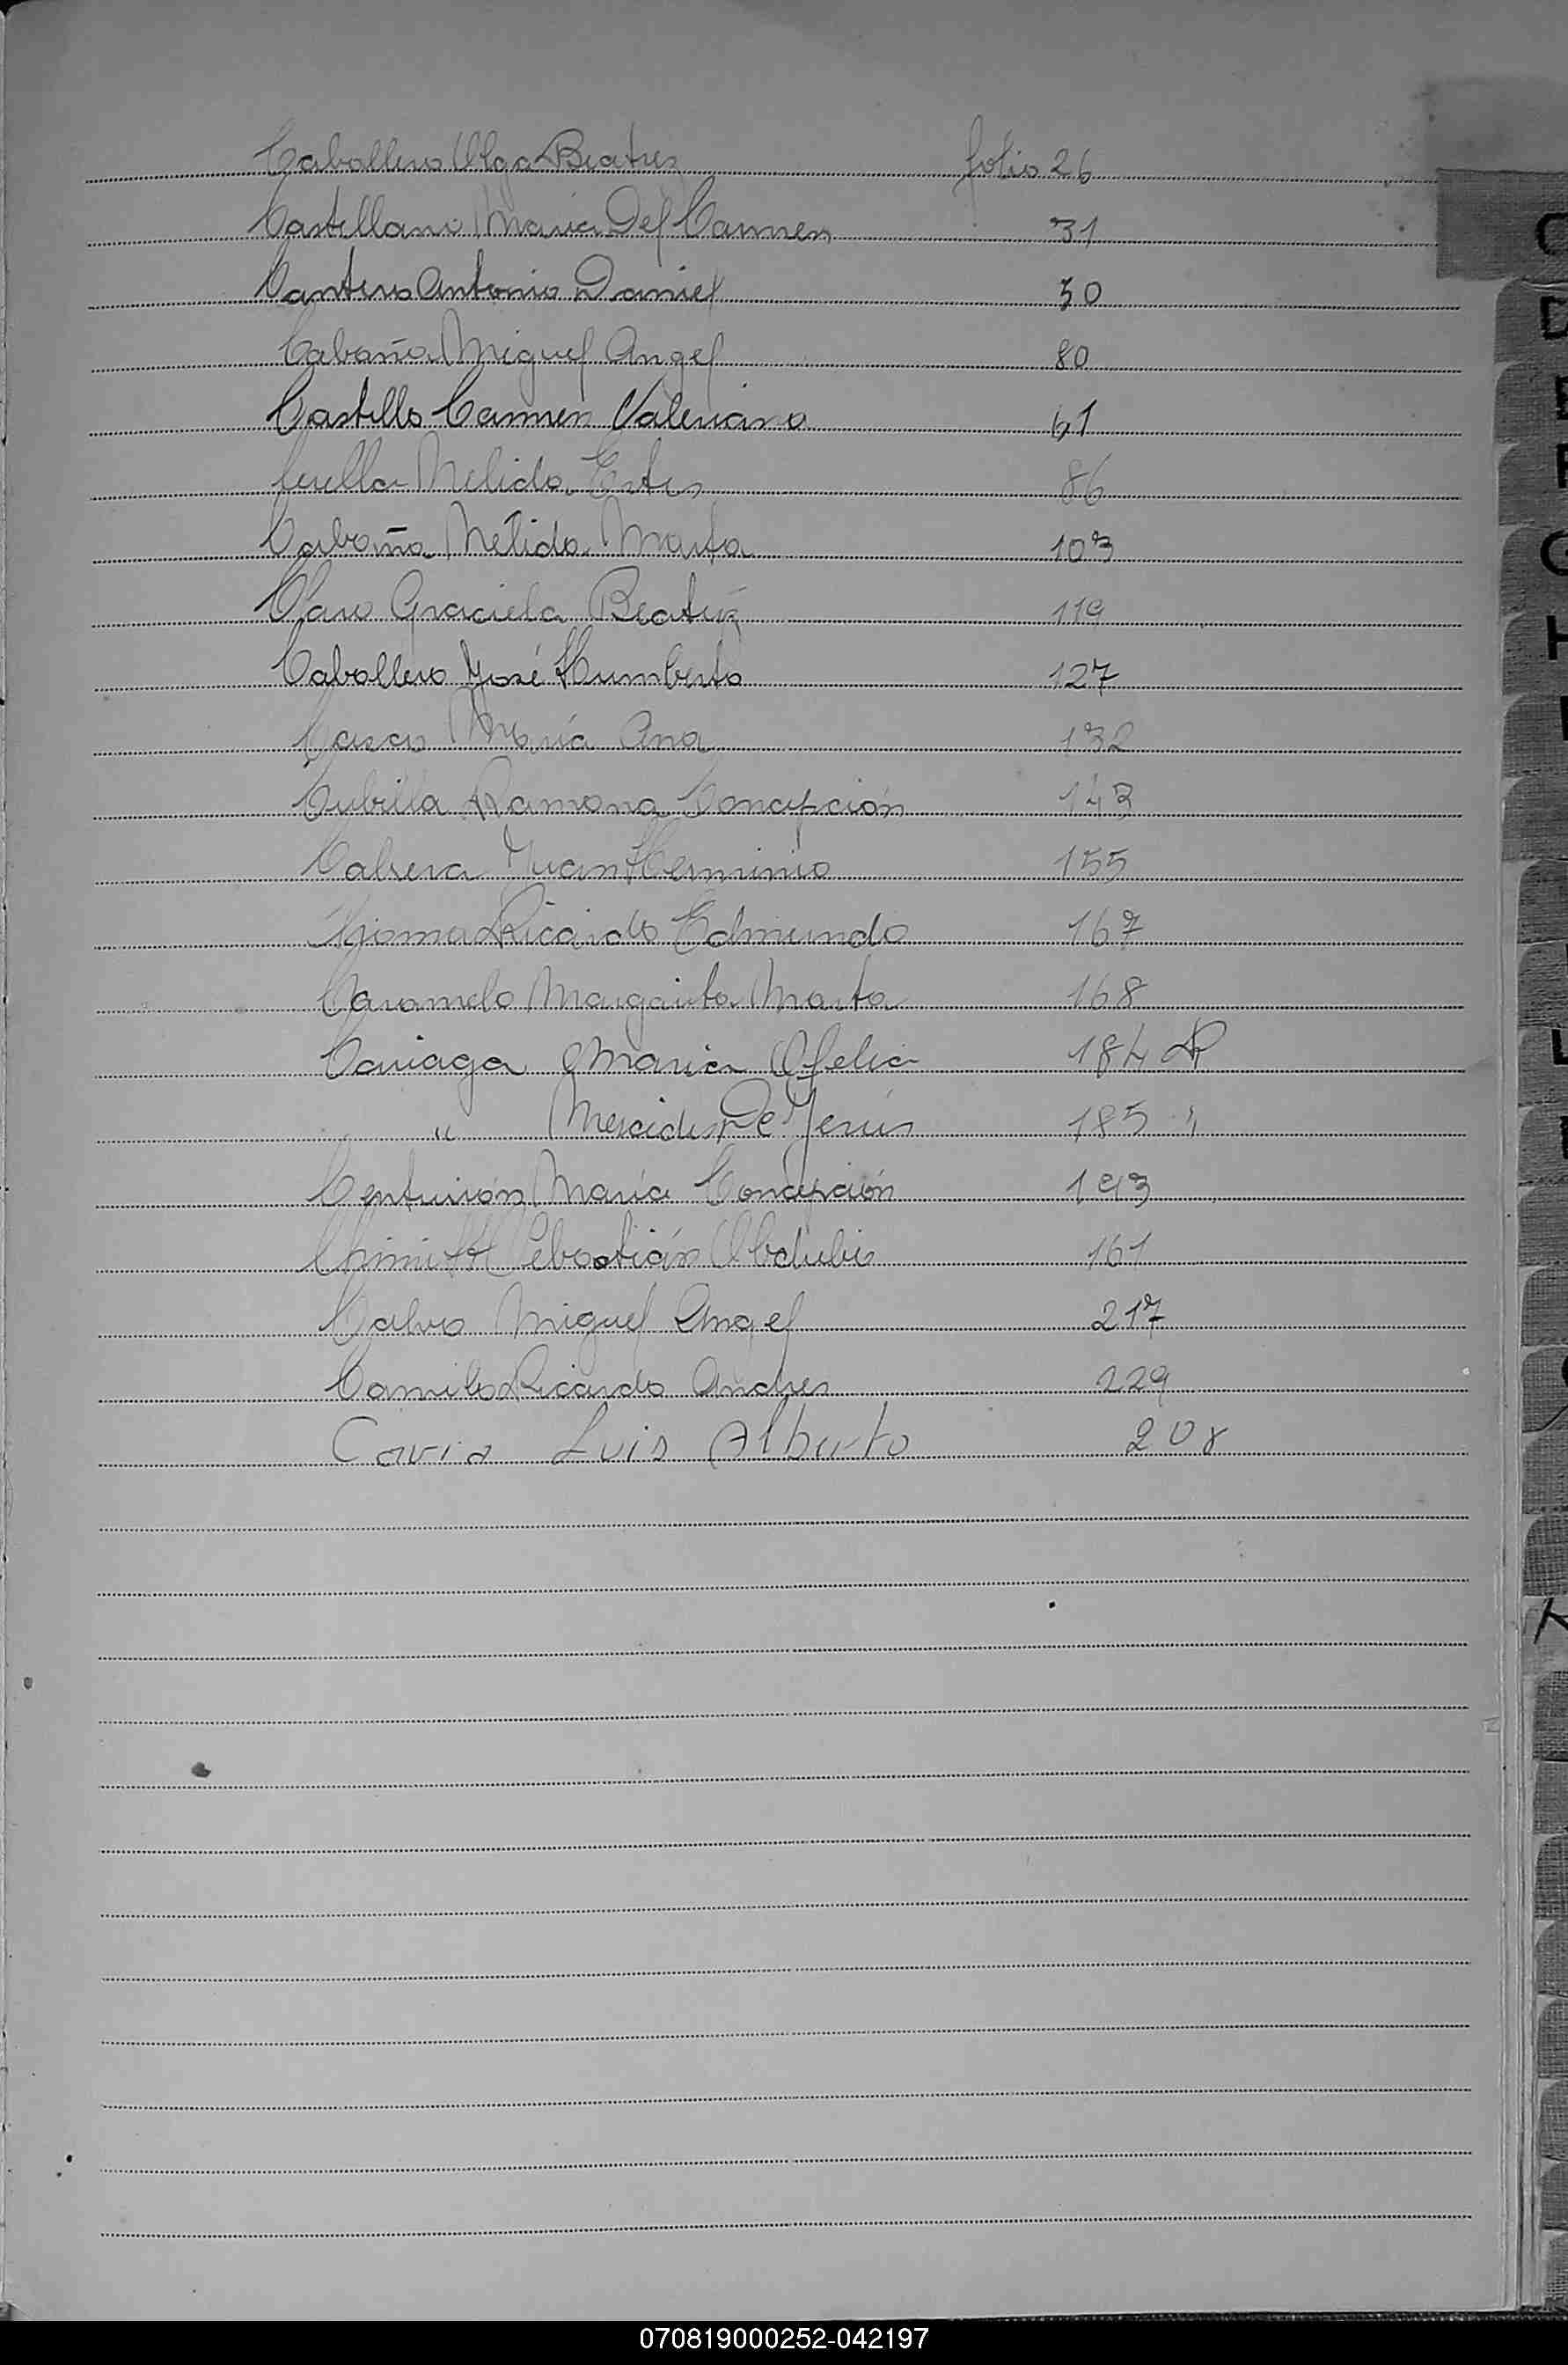 Caballero Olga Beatriz folio 26
Castellano Maria Del Carmen 31
Cantero Antonio Daniel 30
Cabaña Miguel Angel 80
Castillo Carmen Valeriana 61
Nelida 86
Cabaña Nélida Marta 103
Claro Graciela Beatriz 119
Caballero José Humberto 127
Casco María Ana 132
Cubilla Ramona Concepción 143
Cabrera Juan Herminio 155
Ricardo Edmundo 167
Caramelo Margarita Marta 168
Cariaga Maria Ofelia 184
" Mercides De Jesús 185 "
Centurión María Concepción 193
Sebastián 161
Calvo Miguel Angel 217
Camilo Ricardo Andres 229
Cavia Luis Alberto 208
C
D
F
G
H
L
070819000252-042197